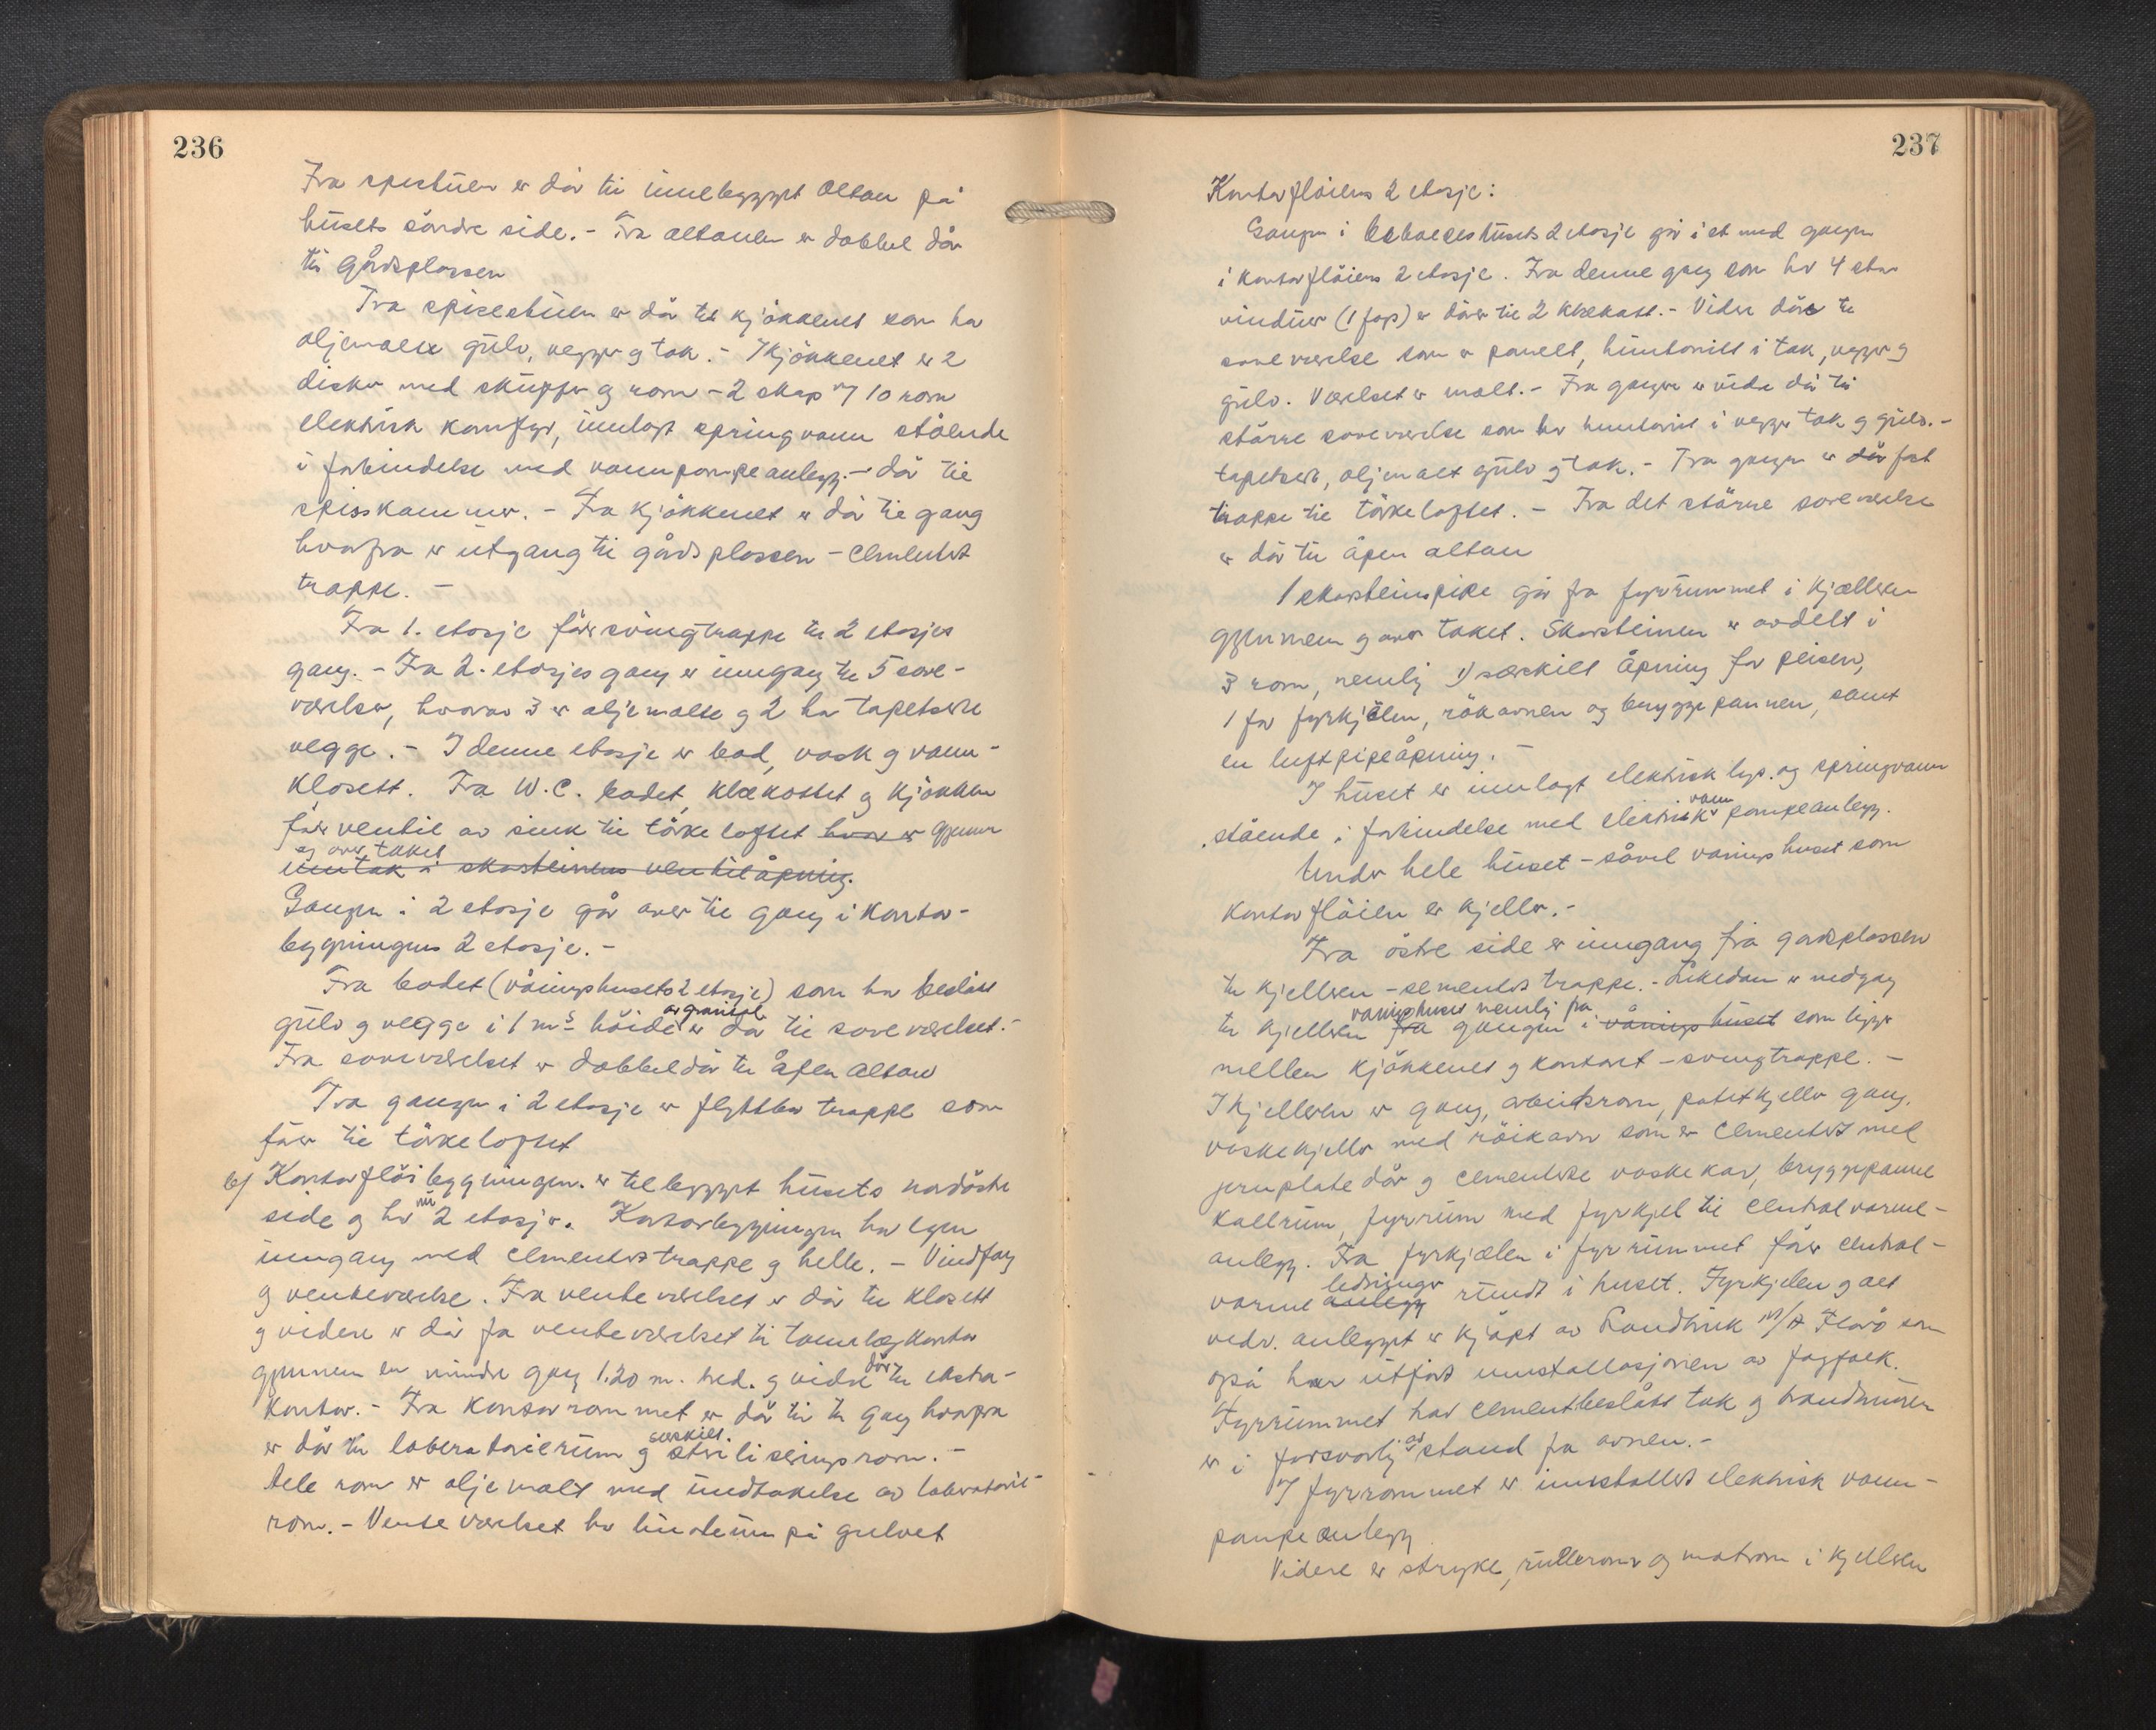 236
Fra spistuen er dör til innebygget altan på
husets söndre side. - Fra altanen er dobbel dör
til gårdsplassen
Fra spisestuen er dör til kjökkenet som har
oljemalte gulv, vegger og tak. - I kjökkenet er 2
disker med skuffer og rom - 2 skap m/ 10 rom
elektrisk komfyr, innlagt springvann stående
i forbindelse med vannpumpeanlegg. - dör til
spisskammer. - Fra kjökkenet er dör til gang
hvorfra er utgang til gårdsplassen - cementert
trappe. -
Fra 1. etasje förer svingtrappe til 2 etasjes
gang. - Fra 2. etasjes gang er inngang til 5 sove-
værelser, hvorav 3 er oljemalte og 2 har tapetserte
vegge. - I denne etasje er bad, vask og vann-
klosett. Fra W.C. badet, klækottet og kjökken
förer ventil av sink til törkeloftet hvor er gjennem
og over taket
inntak i skorsteinens ventilåpning.
Gangen i 2 etasje går over til gang i kontor-
bygningens 2 etasje. -
Fra badet (våningshusets 2 etasje) som har beslått
gulv og vegge i 1 m's höide er dör til soveværelset. -
Fra soveværelset er dobbeldör til åpen altan
Fra gangen i 2 etasje er flyttbar trappe som
förer til törkeloftet
b/ Kontorflöibygningen er tilbygget husets nordöstre
side og har nu 2 etasjer. Kontorbygningen har egen
inngang med cementert trappe og helle. - Vindfang
og venteværelse. Fra venteværelset er dör til klosett
og videre er dör fra venteværelset til tannlægekontor
gjennem en mindre gang 1.20 m. bred. og videre dör til ekstra-
kontor. - Fra kontorrommet er dör til gang hvorfra
er dör til laboratorierum og særskilt steriliseringsrom. -
Hele rom er oljemalt med undtakelse av laboratorie-
rom. - Venteværelset har linoleum på gulvet
237
Kontorflöiens 2 etasje:
Gangen i beboelseshusets 2 etasje går i et med gangen
i kontorflöiens 2 etasje. Fra denne gang som har 4 etm
vinduer (1 fags) er dörer til 2 klækott. - Videre dör til
soveværelse som er panelt, huntonitt i tak, vegger og
gulv. Værelset er malt. - Fra gangen er videre dör til
större soveværelse som har huntonitt i vegger tak og gulv. -
tapetsert, oljemalt gulv og tak. - Fra gangen er dör fast
trappe til törkeloftet. - Fra det större soveværelse
er dör til åpen altan
1 skorsteinspipe går fra fyrrummet i kjælleren
gjennem og over taket. Skorsteinen er avdelt i
3 rom, nemlig 1) særskilt åpning for peisen,
1 for fyrkjelen, rökovnen og bryggepannen, samt
en luftpipeåpning. -
I huset er innlagt elektrisk lys. og springvann
stående i forbindelse med elektrisk vann pumpeanlegg.
Under hele huset - såvel våningshuset som
kontorflöien er kjeller. -
Fra östre side er inngang fra gårdsplassen
til kjelleren - sementert trappe. - Likedan er nedgang
våningshuset nemlig fra
til kjelleren fra gangen i våningshuset som ligger
mellem kjökkenet og kontoret - svingtrappe. -
I kjelleren er gang, arbeidsrom, potetkjeller gang.
vaskekjeller med röikovn som er cementert med
jernplate dör og cementerte vaskekar, bryggepanne
kullrum, fyrrum med fyrkjel til centralvarme-
anlegg. Fra fyrkjælen i fyrrummet förer central-
ledninger
varme anlegg rundt i huset. Fyrkjelen og alt
vedr. anlegget er kjöpt av Sandvik A/S Florö som
også har utfört installasjonen av fagfolk.
Fyrrummet har cementbeslått tak og brandmuren
er i forsvarlig avstand fra ovnen. -
I fyrrommet er installert elektrisk vann-
pumpeanlegg
Videre er stryke, rullerom og matrom i kjelleren